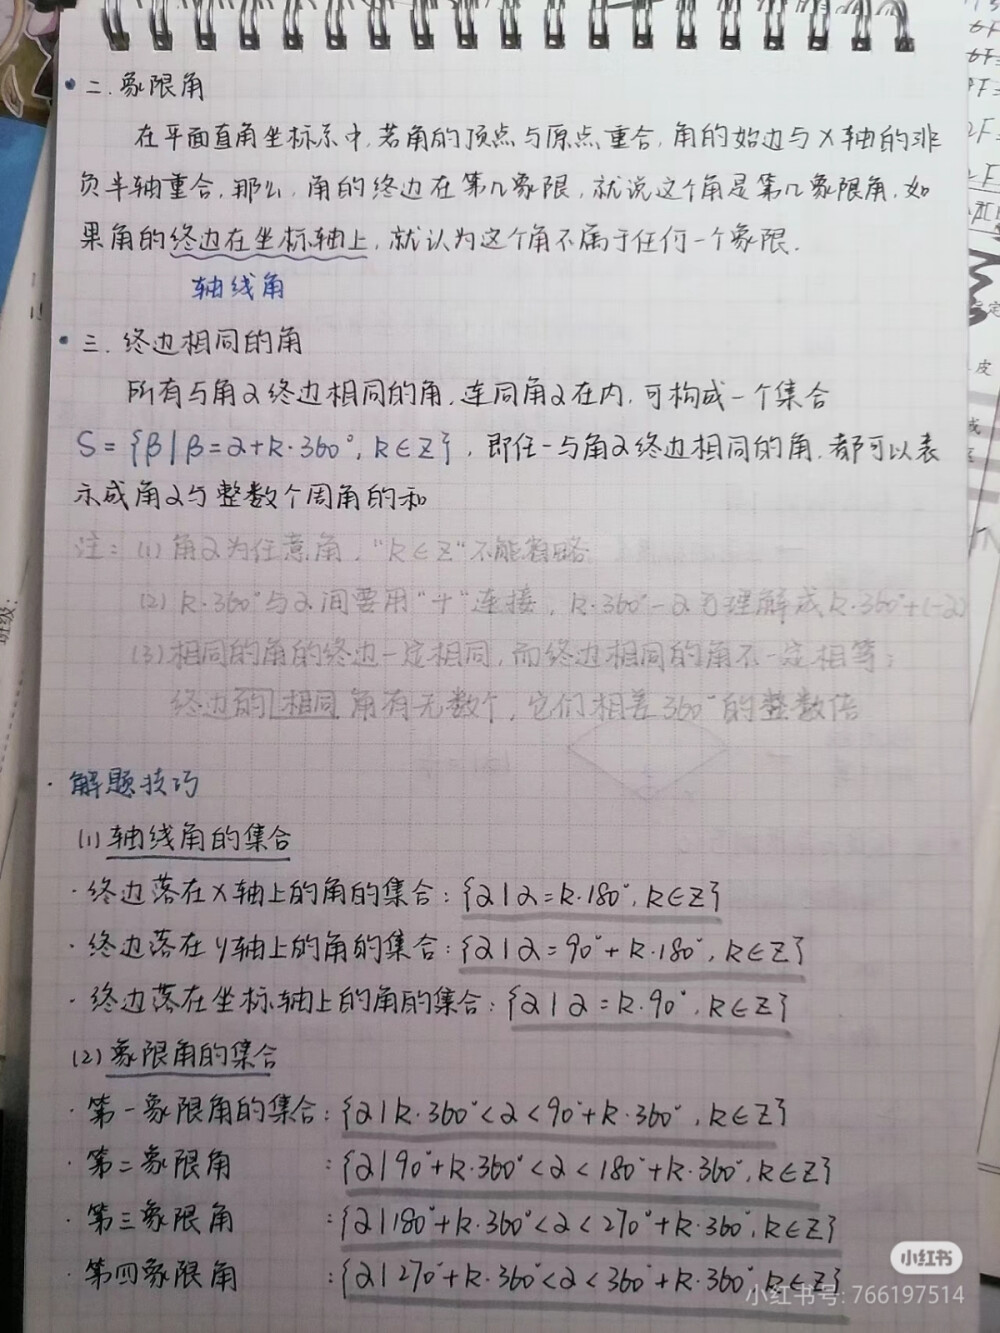 二.象限角
在平面直角坐标系中,若角的顶点与原点重合,角的始边与x轴的非
负半轴重合,那么,角的终边在第几象限,就说这个角是第几象限角.如
果角的终边在坐标轴上,就认为这个角不属于任何一个象限.
轴线角
三.终边相同的角
所有与角α终边相同的角,连同角α在内,可构成一个集合
S={β|β=α+k·360°,k∈Z},即任一与角α终边相同的角,都可以表
示成角α与整数个周角的和
注:(1)角α为任意角,"k∈Z"不能省略
(2)k·360°与α间要用"+"连接,k·360°-α可理解成k·360°+(-α)
(3)相同的角的终边一定相同,而终边相同的角不一定相等;
终边的相同角有无数个,它们相差360°的整数倍
解题技巧
(1)轴线角的集合
·终边落在x轴上的角的集合:{α|α=k·180°,k∈Z}
·终边落在y轴上的角的集合:{α|α=90°+k·180°,k∈Z}
·终边落在坐标轴上的角的集合:{α|α=k·90°,k∈Z}
(2)象限角的集合
·第一象限角的集合:{α|k·360°<α<90°+k·360°,k∈Z}
·第二象限角:{α|90°+k·360°<α<180°+k·360°,k∈Z}
·第三象限角:{α|180°+k·360°<α<270°+k·360°,k∈Z}
·第四象限角:{α|270°+k·360°<α<360°+k·360°,k∈Z}
小红书
小红书号:766197514
班级: